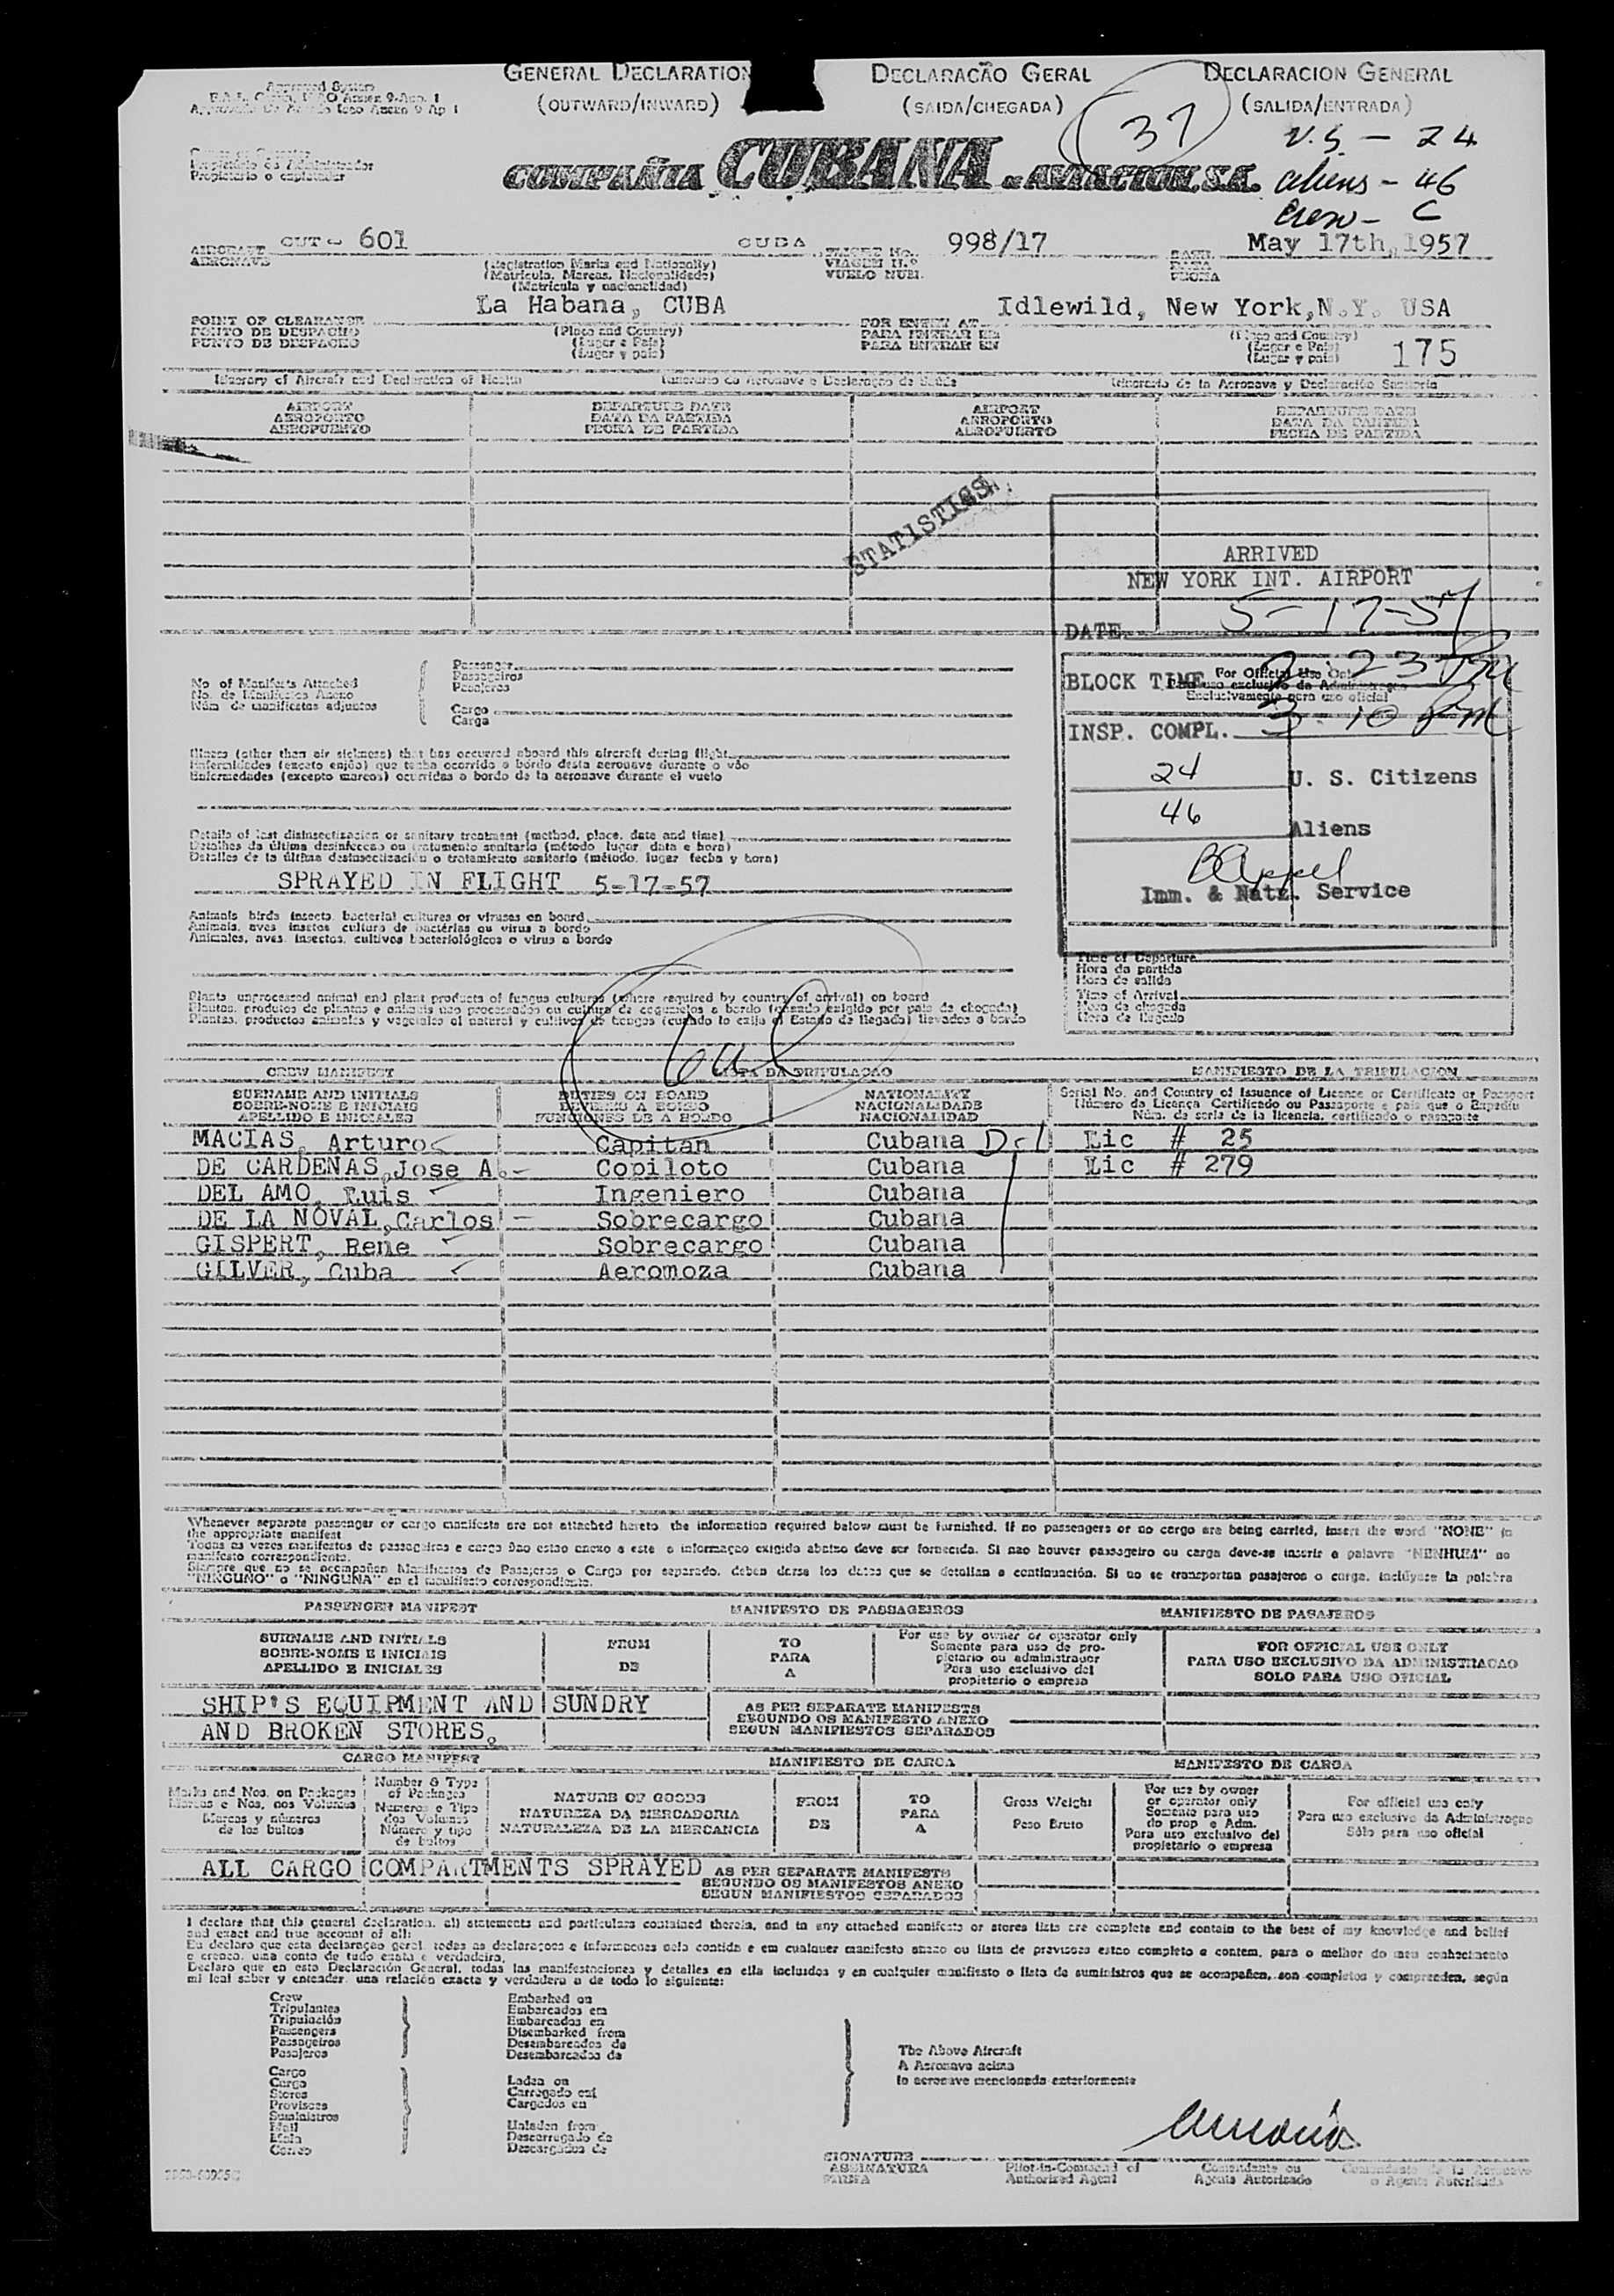 GENERAL DECLARATION
(OUTWARD/INWARD)
DECLARAÇÃO GERAL
(SAIDA/CHEGADA)
DECLARACION GENERAL
(SALIDA/ENTRADA)
37
U.S. - 24
aliens - 46
Crew -
COMPAÑIA CUBANA DE AVIACION, S.A.
Propietario o explotador
AIRCRAFT
AERONAVE
CUT - 601
CUBA
(Registration Marks and Nationality)
(Matricula, Marcas, Nacionalidade)
(Matricula y nacionalidad)
VIAGEM N.º
VUELO NUM.
998/17
DATE
DATA
FECHA
May 17th, 1957
POINT OF CLEARANCE
PONTO DE DESPACHO
PUNTO DE DESPACHO
La Habana, CUBA
(Place and Country)
(Lugar e Pais)
(Lugar y pais)
FOR ENTRY AT
PARA ENTRAR EM
PARA ENTRAR EN
Idlewild, New York, N.Y. USA
(Place and Country)
(Lugar e Pais)
(Lugar y pais)
175
Itinerary of Aircraft and Declaration of Health
Itinerario da Aeronave e Declaração de Saúde
Itinerario de la Aeronave y Declaración Sanitaria
AIRPORT
AEROPORTO
AEROPUERTO
DEPARTURE DATE
DATA DA PARTIDA
FECHA DE PARTIDA
AIRPORT
AEROPORTO
AEROPUERTO
DEPARTURE DATE
DATA DA PARTIDA
FECHA DE PARTIDA
STATISTICS
ARRIVED
NEW YORK INT. AIRPORT
DATE 5-17-57
BLOCK TIME 2:23 PM
For Official Use Only
Exclusivamente para uso oficial
INSP. COMPL. 3:10 PM
24 U. S. Citizens
46 Aliens
Imm. & Natz. Service
No of Manifests Attached
No. de Manifestos Anexo
Núm de manifiestos adjuntos
Passenger
Passageiros
Pasajeros
Cargo
Carga
Illness (other than air sickness) that has occurred aboard this aircraft during flight
Enfermidades (exceto enjôo) que tenha ocorrido a bordo desta aeronave durante o vôo
Enfermedades (excepto mareos) ocurridas a bordo de la aeronave durante el vuelo
Details of last disinsectizacion or sanitary treatment (method, place, date and time)
Detalhes da última desinfeccao ou tratamento sanitario (método, lugar, data e hora)
Detalles de la última desinsectización o tratamiento sanitario (método, lugar fecha y hora)
SPRAYED IN FLIGHT 5-17-57
Animals birds insects, bacterial cultures or viruses on board
Animais, aves insetos cultura de bactérias ou virus a bordo
Animales, aves, insectos, cultivos bacteriológicos o virus a bordo
Plants unprocessed animal and plant products of fungus cultures (where required by country of arrival) on board
Plantas, produtos de plantas e animais nao processados ou cultura de cogumelos a bordo (quando exigido por pais de chegada)
Plantas, productos animales y vegetales al natural y cultivos de hongos (cuando lo exija el Estado de llegada) llevados a bordo
Time of Departure
Hora da partida
Hora de salida
Time of Arrival
Hora da chegada
Hora de llegada
CREW MANIFEST
LISTA DA TRIPULAÇAO
MANIFIESTO DE LA TRIPULACION
SURNAME AND INITIALS
SOBRE-NOME E INICIAIS
APELLIDO E INICIALES
DUTIES ON BOARD
DEVERES A BORDO
FUNCIONES DE A BORDO
NATIONALITY
NACIONALIDADE
NACIONALIDAD
Serial No. and Country of Issuance of License or Certificate or Passport
Número da Licença Certificado ou Passaporte e pais que o Expediu
Núm. de serie de la licencia, certificado o pasaporte
MACIAS, Arturo Capitan Cubana Lic # 25
DE CARDENAS, Jose A. Copiloto Cubana Lic # 279
DEL AMO, Luis Ingeniero Cubana
DE LA NOVAL, Carlos Sobrecargo Cubana
GISPERT, Rene Sobrecargo Cubana
GILVER, Cuba Aeromoza Cubana
Whenever separate passenger or cargo manifests are not attached hereto the information required below must be furnished. If no passengers or no cargo are being carried, insert the word "NONE" in
the appropriate manifest
Todas as vezes manifestos de passageiros e carga nao estao anexo a este a informaçao exigida abaixo deve ser fornecida. Si nao houver passageiro ou carga deve-se inserir a palavra "NENHUM" no
manifesto correspondiente.
Siempre que no se acompañen Manifiestos de Pasajeros o Carga por separado, deben darse los datos que se detallan a continuación. Si no se transportan pasajeros o carga, inclúyase la palabra
"NINGUNO" o "NINGUNA" en el manifiesto correspondiente.
PASSENGER MANIFEST
MANIFESTO DE PASSAGEIROS
MANIFIESTO DE PASAJEROS
SURNAME AND INITIALS
SOBRE-NOME E INICIAIS
APELLIDO E INICIALES
FROM
DE
TO
PARA
A
For use by owner or operator only
Somente para uso de pro-
pietario ou administrador
Para uso exclusivo del
propietario o empresa
FOR OFFICIAL USE ONLY
PARA USO EXCLUSIVO DA ADMINISTRACAO
SOLO PARA USO OFICIAL
SHIP'S EQUIPMENT AND SUNDRY
AND BROKEN STORES.
AS PER SEPARATE MANIFESTS
SEGUNDO OS MANIFESTO ANEXO
SEGUN MANIFIESTOS SEPARADOS
CARGO MANIFEST
MANIFIESTO DE CARGA
MANIFESTO DE CARGA
Marks and Nos. on Packages
Marcas e Nos. nos Volumes
Marcas y números
de los bultos
Number & Type
of Packages
Numeros e Tipo
dos Volumes
Número y tipo
de bultos
NATURE OF GOODS
NATUREZA DA MERCADORIA
NATURALEZA DE LA MERCANCIA
FROM
DE
TO
PARA
A
Gross Weight
Peso Bruto
For use by owner
or operator only
Somente para uso
do prop e Adm.
Para uso exclusivo del
propietario o empresa
For official use only
Para uso exclusivo da Administraçao
Sólo para uso oficial
ALL CARGO COMPARTMENTS SPRAYED
AS PER SEPARATE MANIFESTS
SEGUNDO OS MANIFESTOS ANEXO
SEGUN MANIFIESTOS SEPARADOS
I declare that this general declaration, all statements and particulars contained therein, and in any attached manifests or stores lists are complete and contain to the best of my knowledge and belief
and exact and true account of all:
Eu declaro que esta declaraçao geral, todas as declaraçoes e informacoes nela contida e em cualquer manifesto anexo ou lista de provisoes estao completo e contem, para o melhor do meu conhecimento
e crenca, una conta de tudo exata e verdadeira.
Declaro que en esta Declaración General, todas las manifestaciones y detalles en ella incluidos y en cualquier manifiesto o lista de suministros que se acompañen, son completos y comprenden, según
mi leal saber y entender, una relación exacta y verdadera a de todo lo siguiente:
Crew
Tripulantes
Tripulación
Passengers
Passageiros
Pasajeros
Embarked on
Embarcados em
Embarcados en
Disembarked from
Desembarcados de
Desembarcados de
Cargo
Carga
Stores
Provisoes
Suministros
Mail
Mala
Correo
Laden on
Carregado em
Cargados en
Unladen from
Descarregado de
Descargados de
The Above Aircraft
A Aeronave acima
la aeronave mencionada anteriormente
SIGNATURE
ASSINATURA
FIRMA
Pilot-in-Command of
Authorized Agent
Comandante ou
Agente Autorizado
Comandante de la Aeronave
o Agente Autorizado